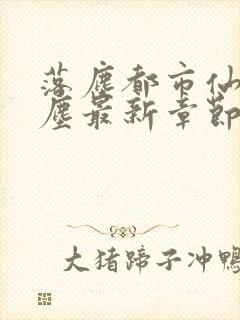 落塵都市仙
塵最新章節
大猪蹄子冲鴨